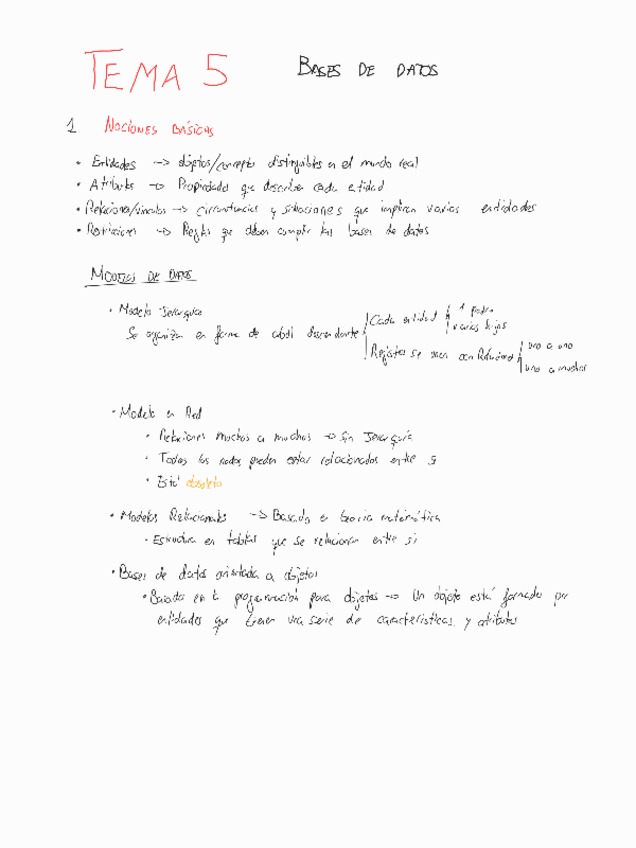 TEMA 5 BASES DE DATOS
1 NOCIONES BÁSICAS
• Entidades -> objetos/concepto distinguibles en el mundo real
• Atributos -> Propiedades que describen cada entidad
• Relaciones/vinculos -> circunstancias y situaciones que implican varias entidades
• Restricciones -> Reglas que deben cumplir las bases de datos
MODELOS DE DATOS
• Modelo Jerarquico
Se organizan en forma de arbol descendente
Cada entidad
1 padre
varios hijos
Registros se unen con
uno a uno
uno a muchos
• Modelo en Red
• Relaciones muchos a muchos -> Sin Jerarquía
• Todos los nodos pueden estar relacionados entre si
• Está obsoleto
• Modelos Relacionales -> Basado en teoria matemática
• Estructura en tablas que se relacionan entre si
• Bases de datos orientada a objetos
• Basados en la programación para objetos -> Un objeto está formado por
entidades que tienen una serie de características y atributos